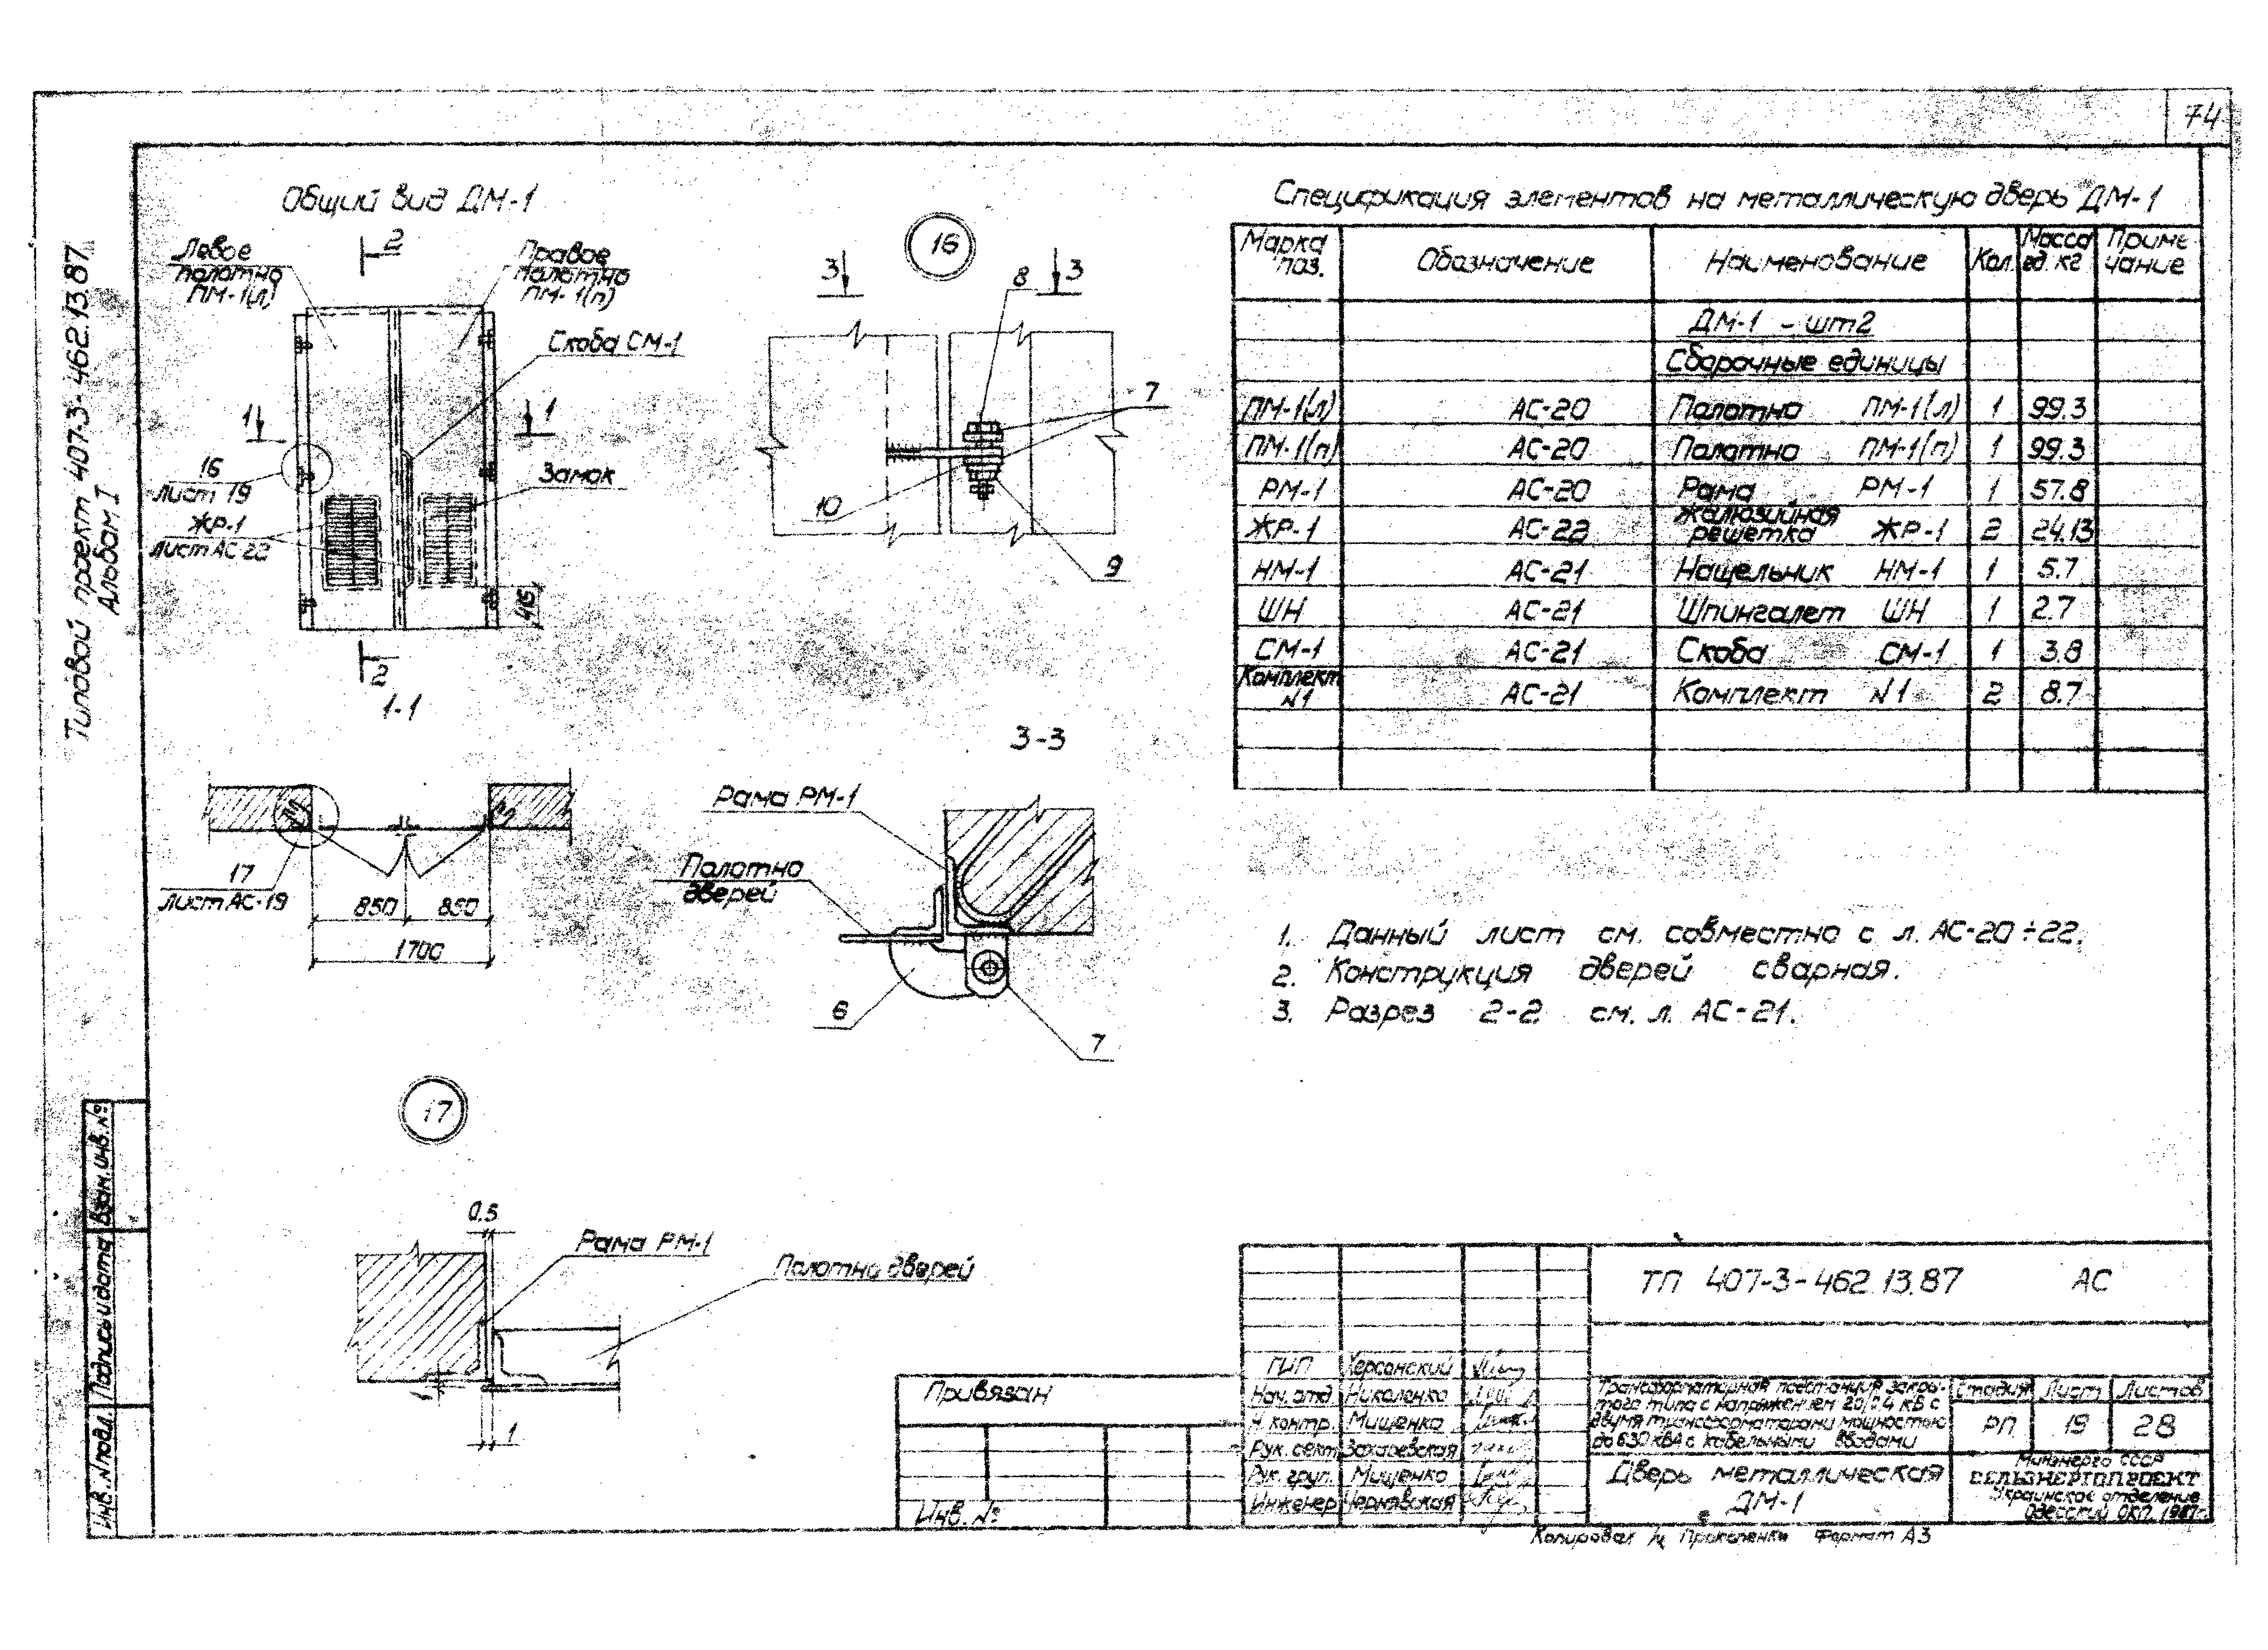 74
Типовой проект 407-3-462.13.87
Альбом I
Общий вид ДМ-1
Левое
полотно
ПМ-1(л)
2
Правое
полотно
ПМ-1(п)
Скоба СМ-1
1
1
16
лист 19
Замок
ЖР-1
лист АС 22
2
16
3
3
8
7
10
9
1-1
17
лист АС-19
850
850
1700
3-3
Рама РМ-1
Полотно
дверей
6
7
17
0.5
Рама РМ-1
Полотно дверей
1
Спецификация элементов на металлическую дверь ДМ-1
Марка поз. Обозначение Наименование Кол. Масса ед. кг Примечание
ДМ-1 - шт2
Сборочные единицы
ПМ-1(л) АС-20 Полотно ПМ-1(л) 1 99.3
ПМ-1(п) АС-20 Полотно ПМ-1(п) 1 99.3
РМ-1 АС-20 Рама РМ-1 1 57.8
ЖР-1 АС-22 Жалюзийная решетка ЖР-1 2 24.13
НМ-1 АС-21 Нащельник НМ-1 1 5.7
ШН АС-21 Шпингалет ШН 1 2.7
СМ-1 АС-21 Скоба СМ-1 1 3.8
Комплект N1 АС-21 Комплект N1 2 8.7
1. Данный лист см. совместно с л. АС-20÷22.
2. Конструкция дверей сварная.
3. Разрез 2-2 см. л. АС-21.
Взам. инв. №
Подпись и дата
Инв. N подл.
Привязан
Инв. №
ТП 407-3-462.13.87 АС
ГИП Херсонский
Нач. отд. Николенко
Н. контр. Мищенко
Рук. сект. Захаревская
Рук. груп. Мищенко
Инженер Чернявская
Трансформаторная подстанция закры-
того типа с напряжением 20/0.4 кВ с
двумя трансформаторами мощностью
до 630 кВА с кабельными вводами
Стадия Лист Листов
РП 19 28
Дверь металлическая
ДМ-1
Минэнерго СССР
СЕЛЬЭНЕРГОПРОЕКТ
Украинское отделение
Одесский ОКП. 1987г.
Копировал Прокопенко Формат А3